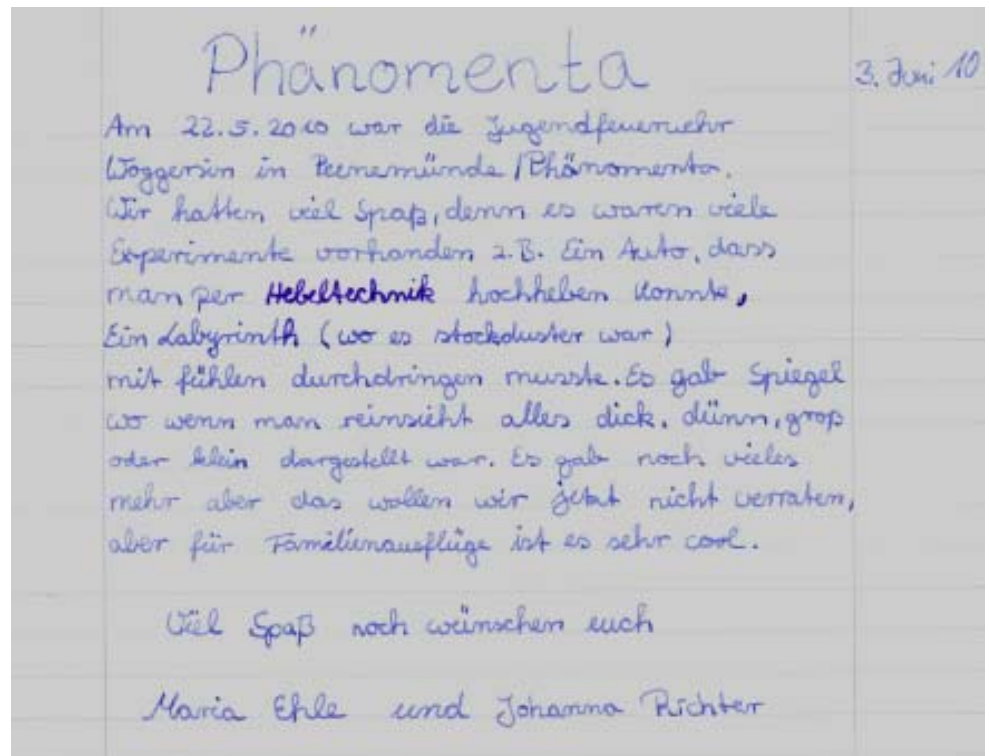 Phänomenta
3. Juni 10
Am 22.5.2010 war die Jugendfeuerwehr
Woggersin in Peenemünde/Phänomenta.
Wir hatten viel Spaß, denn es waren viele
Experimente vorhanden z.B. Ein Auto, dass
man per Hebeltechnik hochheben konnte,
Ein Labyrinth (wo es stockduster war)
mit fühlen durchdringen musste. Es gab Spiegel
wo wenn man reinsieht alles dick, dünn, groß
oder klein dargestellt war. Es gab noch vieles
mehr aber das wollen wir jetzt nicht verraten,
aber für Familienausflüge ist es sehr cool.
Viel Spaß noch wünschen euch
Maria Ehle und Johanna Richter